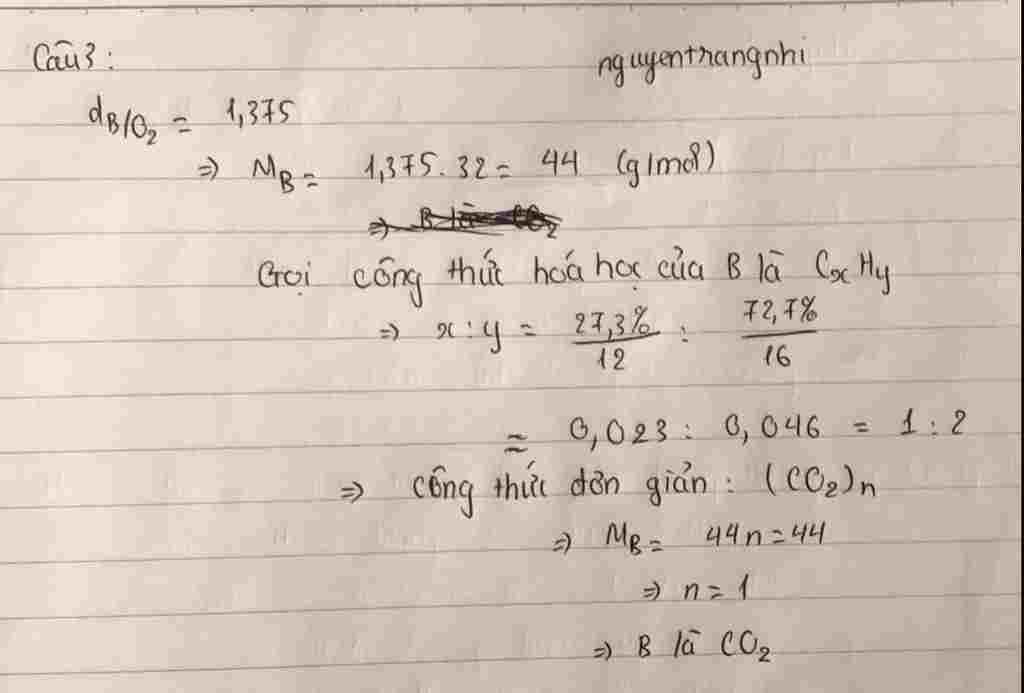 Câu 3: nguyentrangnhi
d_{B/O_2} = 1,375
=> M_B = 1,375.32 = 44 (g/mol)
=> B là CO_2
Gọi công thức hoá học của B là C_xH_y
=> x : y = \frac{27,3%}{12} : \frac{72,7%}{16}
≈ 0,023 : 0,046 = 1 : 2
=> công thức đơn giản : (CO_2)_n
=> M_B = 44n = 44
=> n = 1
=> B là CO_2